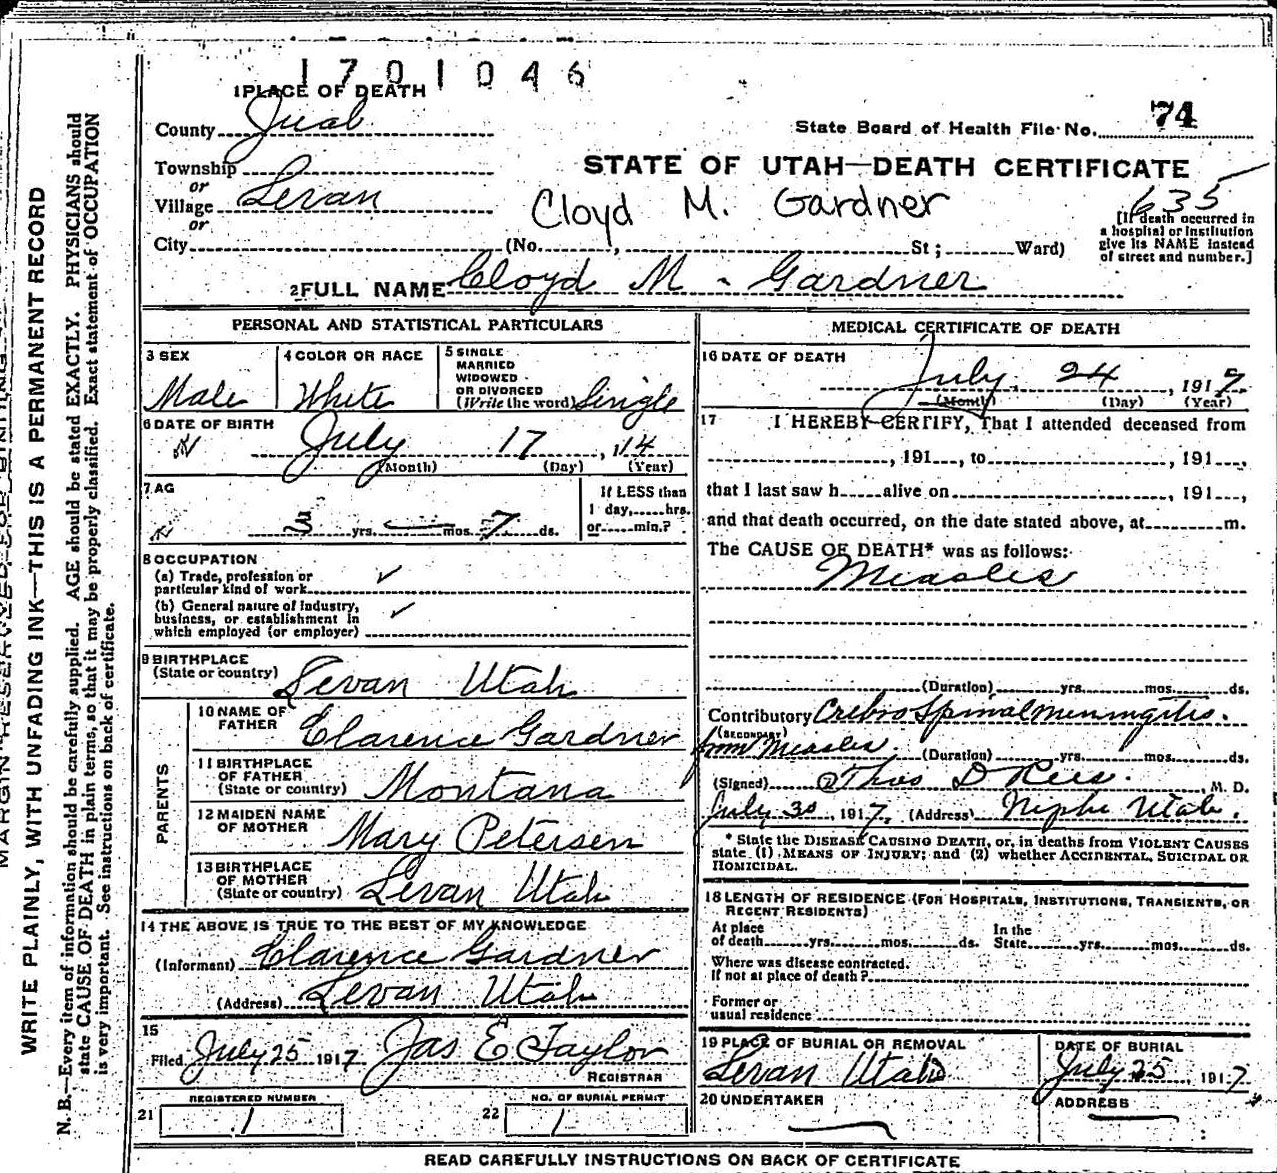 1701046
1 PLACE OF DEATH
74
County Juab
State Board of Health File No.
Township
or
STATE OF UTAH—DEATH CERTIFICATE
Village Levan
Cloyd M. Gardner
635
or
City (No. , St ; Ward)
[If death occurred in
a hospital or institution
give its NAME instead
of street and number.]
2 FULL NAME Cloyd M - Gardner
PERSONAL AND STATISTICAL PARTICULARS
3 SEX
Male
4 COLOR OR RACE
White
5 SINGLE
MARRIED
WIDOWED
OR DIVORCED
(Write the word) Single
6 DATE OF BIRTH
July 17, 114
(Month) (Day) (Year)
7 AG
3 yrs. — mos. 7 ds.
If LESS than
1 day, hrs.
or min.?
8 OCCUPATION
(a) Trade, profession or
particular kind of work
(b) General nature of industry,
business, or establishment in
which employed (or employer)
9 BIRTHPLACE
(State or country) Levan Utah
PARENTS
10 NAME OF
FATHER Clarence Gardner
11 BIRTHPLACE
OF FATHER
(State or country) Montana
12 MAIDEN NAME
OF MOTHER Mary Petersen
13 BIRTHPLACE
OF MOTHER
(State or country) Levan Utah
14 THE ABOVE IS TRUE TO THE BEST OF MY KNOWLEDGE
(Informant) Clarence Gardner
(Address) Levan Utah
15
Filed July 25 1917 Jas E Taylor
REGISTRAR
21 REGISTERED NUMBER
1
22 NO. OF BURIAL PERMIT
1
MEDICAL CERTIFICATE OF DEATH
16 DATE OF DEATH
July 24, 1917
(Month) (Day) (Year)
17 I HEREBY CERTIFY, That I attended deceased from
, 191 , to , 191 ,
that I last saw h alive on , 191 ,
and that death occurred, on the date stated above, at m.
The CAUSE OF DEATH* was as follows:
Measles
(Duration) yrs. mos. ds.
Contributory Crebro Spinal meningitis.
(SECONDARY)
from Measles. (Duration) yrs. mos. ds.
(Signed) Thos D Rees. , M. D.
July 30, 1917. (Address) Nephi Utah.
* State the DISEASE CAUSING DEATH, or, in deaths from VIOLENT CAUSES
state (1) MEANS OF INJURY; and (2) whether ACCIDENTAL, SUICIDAL OR
HOMICIDAL.
18 LENGTH OF RESIDENCE (FOR HOSPITALS, INSTITUTIONS, TRANSIENTS, OR
RECENT RESIDENTS)
At place
of death yrs. mos. ds.
In the
State yrs. mos. ds.
Where was disease contracted,
if not at place of death?
Former or
usual residence
19 PLACE OF BURIAL OR REMOVAL
Levan Utah
DATE OF BURIAL
July 25, 1917
20 UNDERTAKER
ADDRESS
READ CAREFULLY INSTRUCTIONS ON BACK OF CERTIFICATE
WRITE PLAINLY, WITH UNFADING INK—THIS IS A PERMANENT RECORD
N. B.—Every item of information should be carefully supplied. AGE should be stated EXACTLY. PHYSICIANS should
state CAUSE OF DEATH in plain terms, so that it may be properly classified. Exact statement of OCCUPATION
is very important. See instructions on back of certificate.